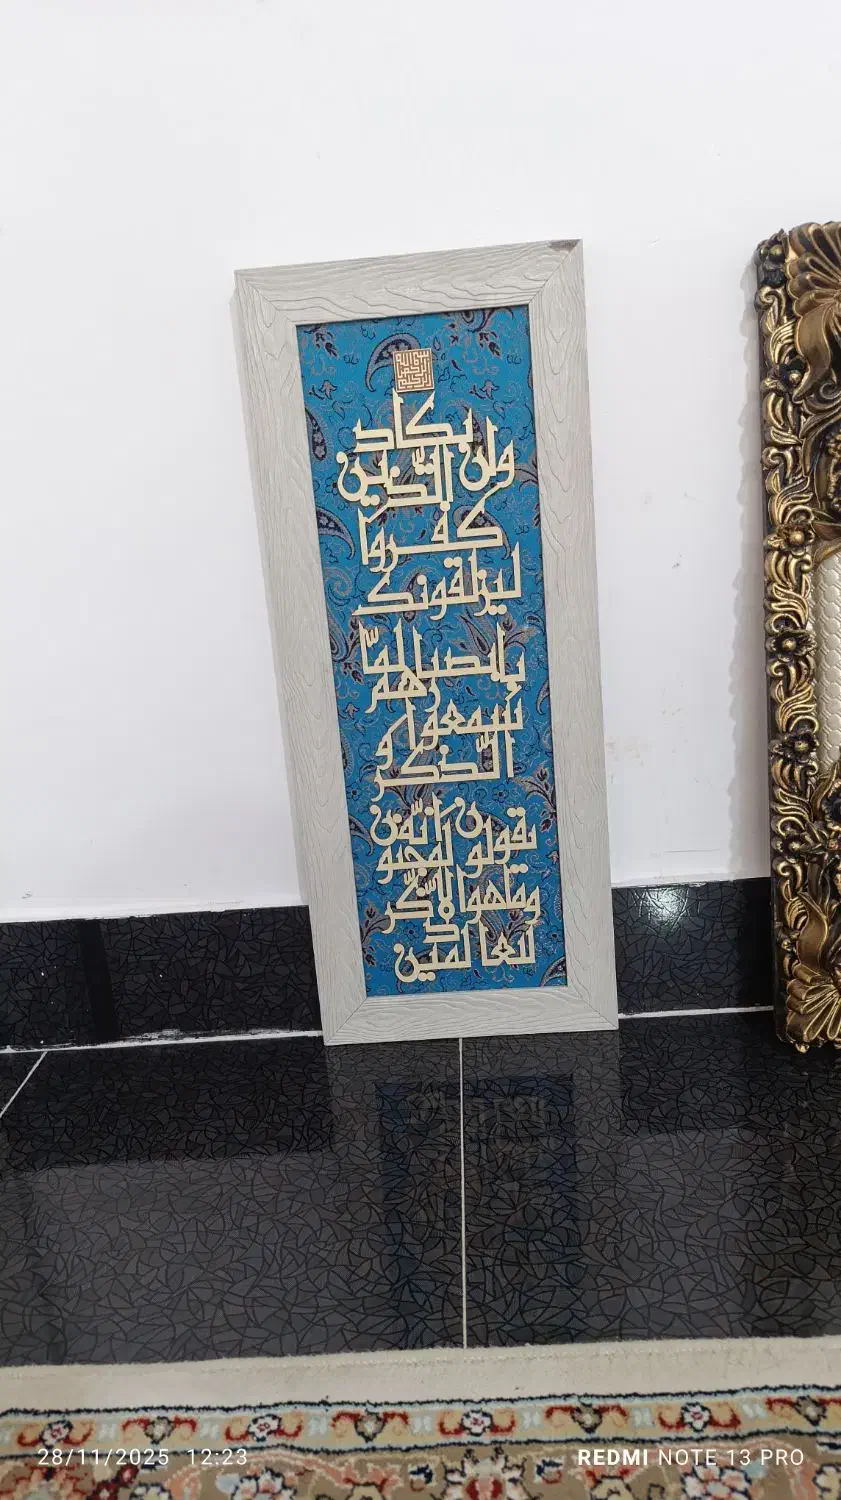 بسم الله الرحمن الرحيم
وان يكاد
الّذين
كفروا
ليزلقونك
بابصارهم لمّا
سمعوا
الّذكر و
يقولون انّه
لمجنون
وماهو الا ذكر
للعالمين
28/11/2025 12:23
REDMI NOTE 13 PRO